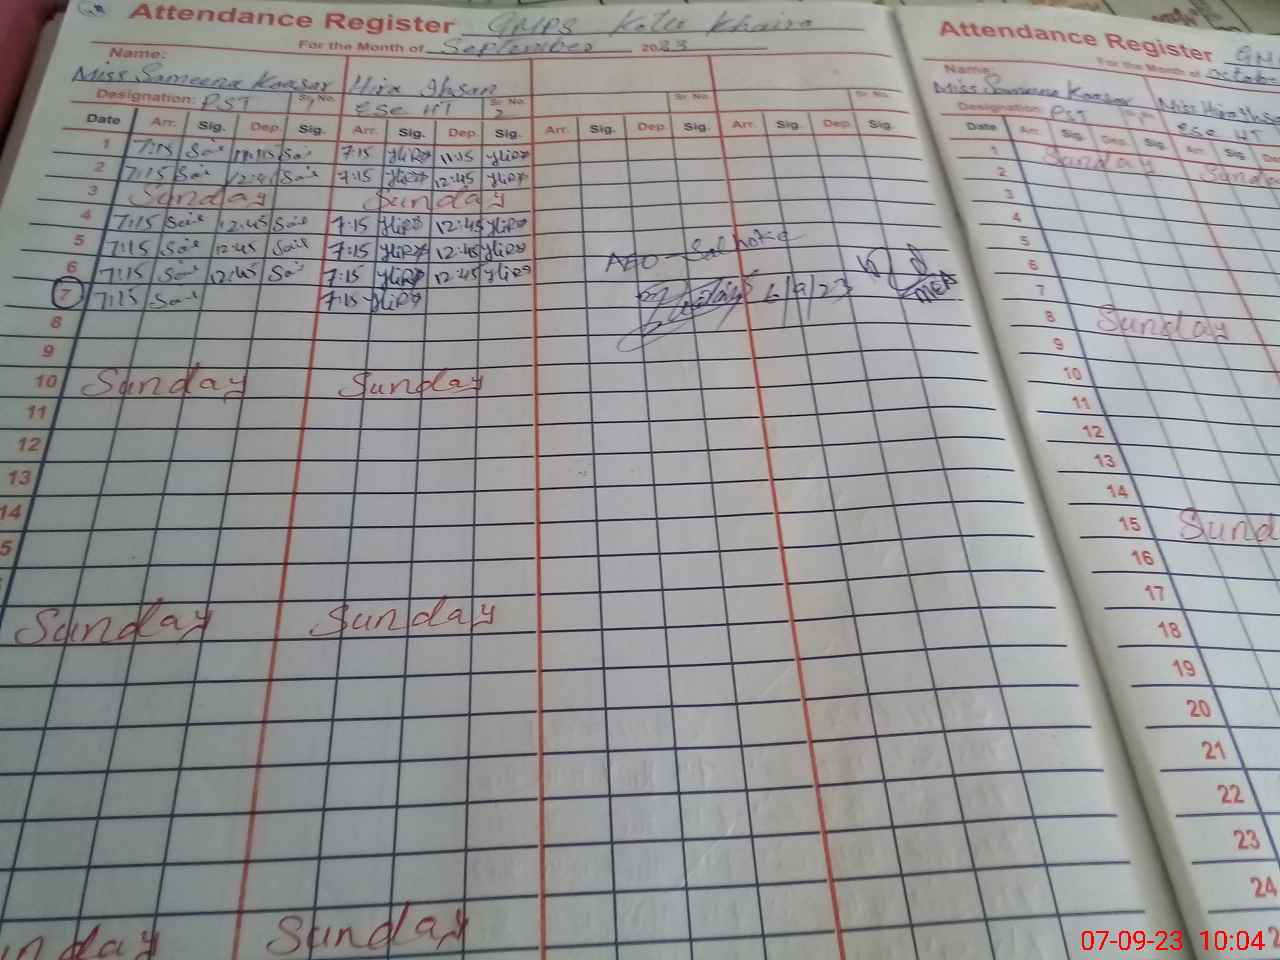 Attendance Register GMPS Kotu Khaira
For the Month of September 2023
Name:
Miss Sameena Kaasar Hira Ihsan
Designation: PST Sr. No. ESE HT Sr. No. 2 Sr. No. Sr. No.
Date Arr. Sig. Dep. Sig. Arr. Sig. Dep. Sig. Arr. Sig. Dep. Sig. Arr. Sig. Dep. Sig.
1 7:15 11:15 7:15 11:15
2 7:15 12:45 7:15 12:45
3 Sunday Sunday
4 7:15 12:45 7:15 12:45
5 7:15 12:45 7:15 12:45
6 7:15 12:45 7:15 12:45
7 7:15 7:15
AEO
6/9/23
MEA
8
9
10 Sunday Sunday
11
12
13
14
5
Sunday Sunday
nday Sunday
Attendance Register
For the Month of October
Name:
Miss Sameena Kaasar Miss Hira Ihsa
Designation: PST ESE HT
Date Arr. Sig. Dep. Sig. Arr. Sig. De
1 Sunday Sunda
2
3
4
5
6
7
8 Sunday
9
10
11
12
13
14
15 Sund
16
17
18
19
20
21
22
23
24
2
07-09-23 10:04